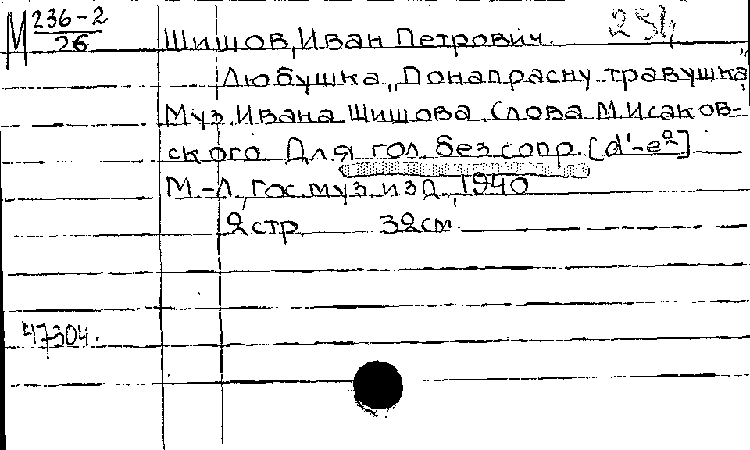 М 236-2
26
Шишов, Иван Петрович.
Любушка „Понапрасну травушка"
Муз. Ивана Шишова. Слова М. Исаков-
ского. Для гол. без сопр. [d'-e²]
М.-Л., Гос. муз. изд., 1940
2 стр. 32 см.
47304.